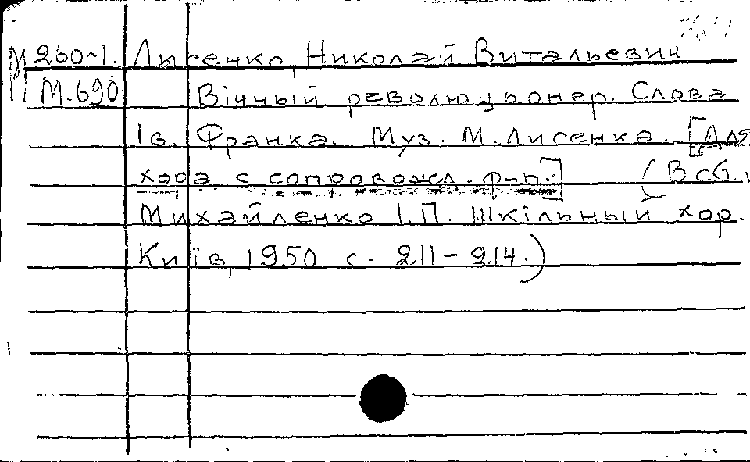 М260-1. Лысенко, Николай Витальевич
М.690 Вічный революціонер. Слова
Ів. Франка. Муз. М. Лисенка. [Для
хора с сопровожд. ф-п.] (В сб.:
Михайленко І.П. Шкільный хор.
Київ, 1950 с. 211-214.)